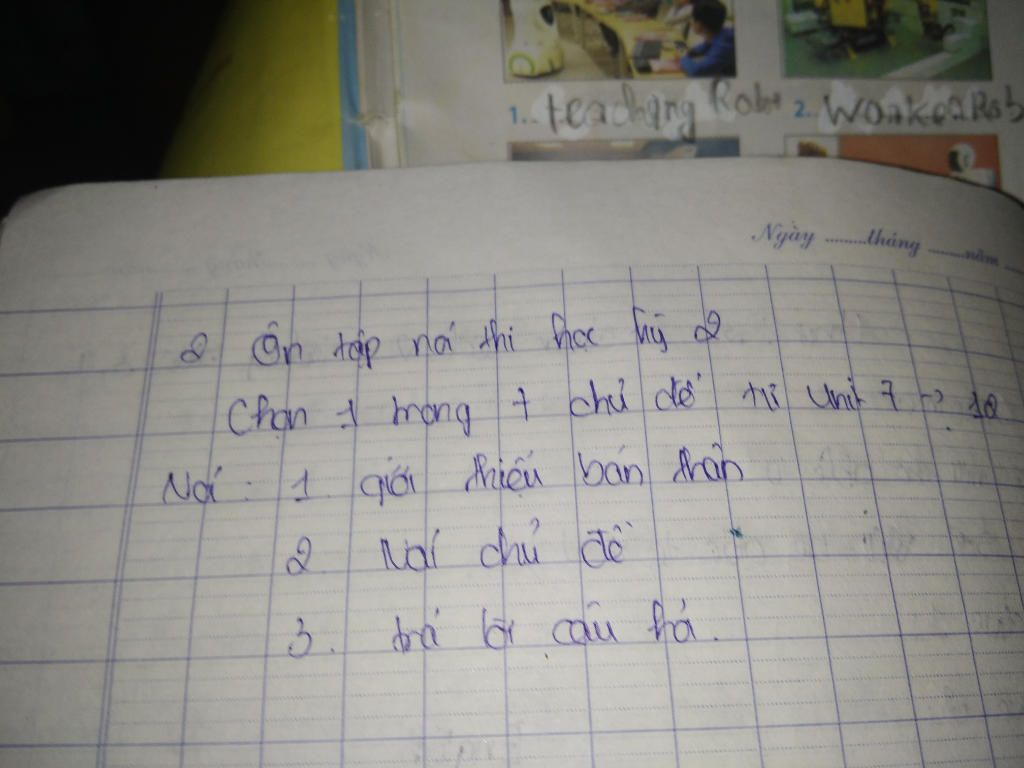 1. teaching Robot 2. WorkerRob
Ngày ........tháng .......năm
2. Ôn tập nói thi học kỳ 2
Chọn 1 trong 7 chủ đề từ Unit 7 -> 12
Nói : 1. giới thiệu bản thân
2. Nói chủ đề
3. trả lời câu hỏi.